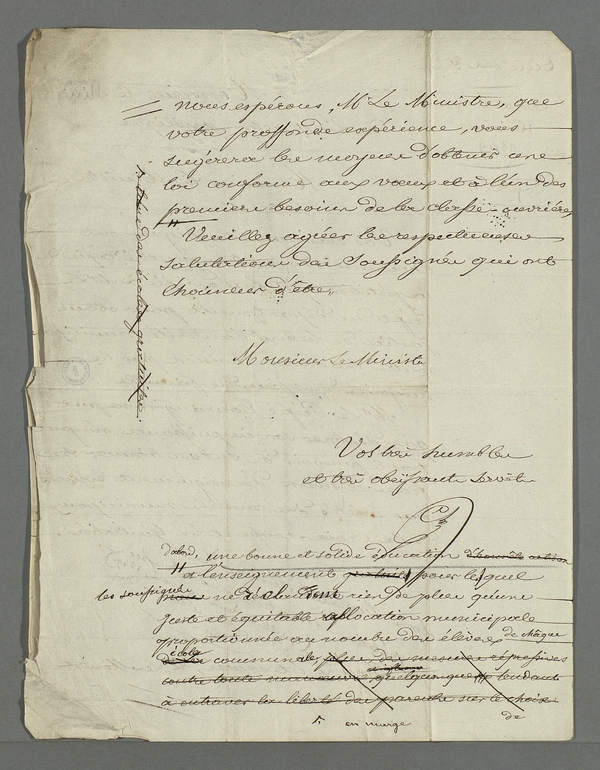 nous espérons, Mr Le Ministre, que
votre proffonde expérience, vous
sugérera les moyens d'obtenir une
loi conforme aux vœux et à l'un des
premiers besoins de la classe ouvrière
Veuillez agréer les respectueuses
salutations des soussignés qui ont
l'honneur d'être,,
Monsieur Le Ministre
Vos très humbles
et très obéissants servit
d'abord, une bonne et solide éducation
à l'enseignement gratuit pour lequel
les soussignés ne réclament rien de plus qu'une
juste et équitable allocation municipale
proportionnée au nombre des élèves de chaque
école
communale, plus, des mesures répressives
contre toute manœuvre quelconque tendant
à entraver la liberté des parents sur le choix
de
en marge
des écoles gratuites.